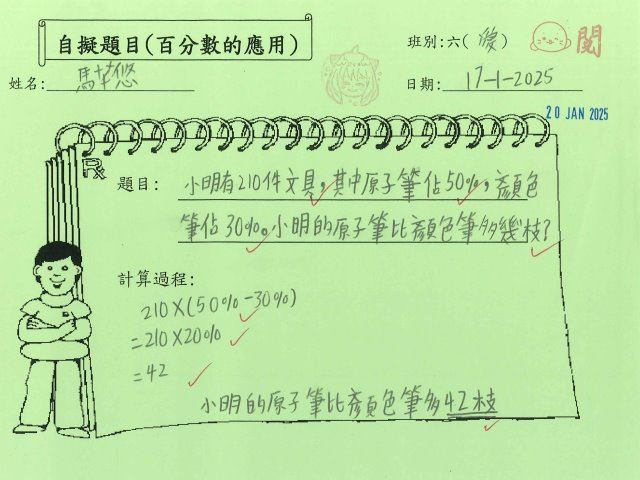 自擬題目(百分數的應用)
班別:六( )
閱
姓名: 馬梓悠
日期: 17-1-2025
20 JAN 2025
題目: 小明有210件文具,其中原子筆佔50%,顏色
筆佔30%。小明的原子筆比顏色筆多幾枝?
計算過程:
210×(50%-30%)
=210×20%
=42
小明的原子筆比顏色筆多42枝